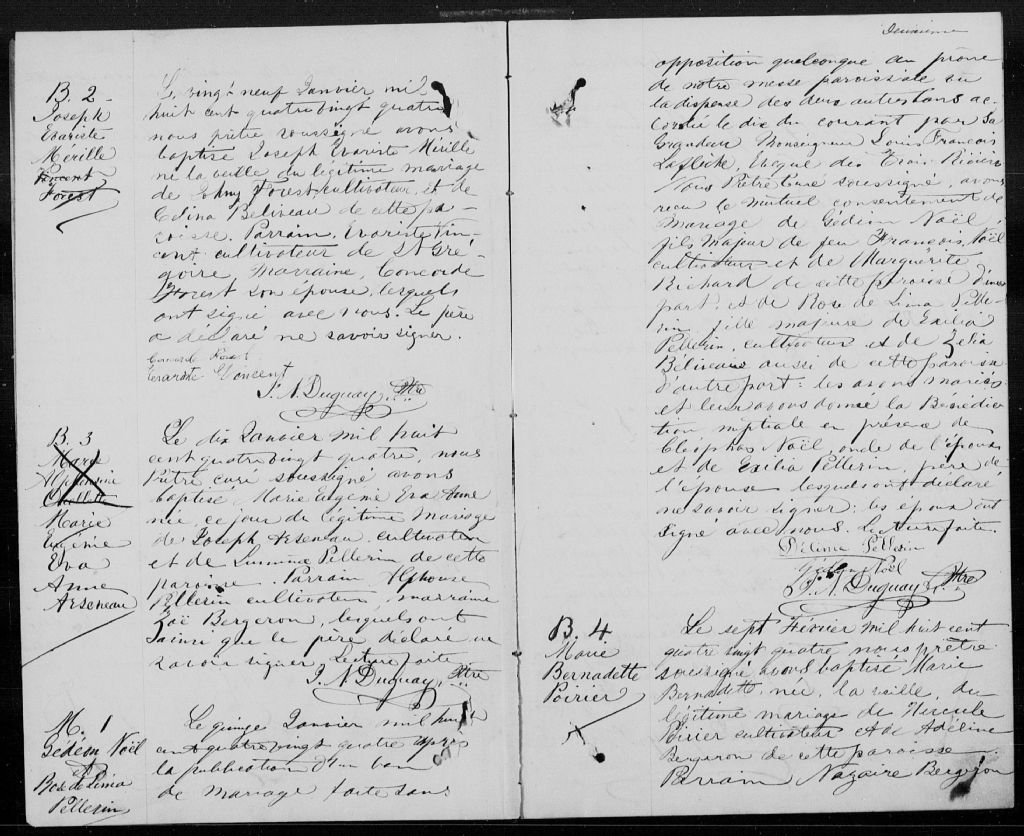 B. 2
Joseph
Evariste
Mérille
Vincent
Forest
Le vingt neuf Janvier mil
huit cent quatre vingt quatre
nous prêtre soussigné avons
baptisé Joseph Evariste Mérille
né la veille du légitime mariage
de Forest, cultivateur, et de
Edina Beliveau de cette pa-
roisse. Parrain, Evariste Vin-
cent cultivateur de St Gré-
goire, Marraine, Concorde
Forest son épouse, lesquels
ont signé avec nous. Le père
a déclaré ne savoir signer.
Concorde Forest
Evariste Vincent
J. N. Duguay, Ptre
B. 3
Marie
Alphonsine
Marie
Eugénie
Eva
Anne
Arseneau
Le dix Janvier mil huit
cent quatre vingt quatre, nous
Prêtre curé soussigné avons
baptisé Marie Eugénie Eva Anne
née, ce jour du légitime Mariage
de Joseph Arseneau cultivateur
et de Pellerin de cette
paroisse. Parrain Alphonse
Pellerin cultivateur, marraine
Zoé Bergeron, lesquels ont
ainsi que le père déclaré ne
savoir signer. Lecture faite
J. N. Duguay, Ptre
M. 1
Gédéon Noël
et
Rose de Lima
Pellerin
Le quinze Janvier mil huit
cent quatre vingt quatre après
la publication d'un ban
de mariage faite sans
Deuxième
opposition quelconque au prône
de notre messe paroissiale vu
la dispense des deux autres bans ac-
cordée le dix du courant par Sa
Grandeur Monseigneur Louis François
Laflèche, Evêque des Trois Rivières
Nous Prêtre Curé soussigné, avons
reçu le mutuel consentement de
Mariage de Gédéon Noël
fils Majeur de feu François Noël
cultivateur et de Marguerite
Richard de cette paroisse d'une
part, et de Rose de Lima Pelle-
rin fille majeure de Exilia
Pellerin, cultivateur et de Zélia
Béliveau aussi de cette paroisse
d'autre part: les avons mariés
et leur avons donné la Bénédic-
tion nuptiale en présence de
Cléophas Noël, oncle de l'époux
et de Exilia Pellerin, père de
l'épouse lesquels ont déclaré
ne savoir signer: les époux ont
signé avec nous. Lecture faite.
Délima Pellerin
Gédéon Noël
J. N. Duguay, Ptre
B. 4
Marie
Bernadette
Poirier
Le sept Février mil huit cent
quatre vingt quatre nous prêtre
soussigné avons baptisé Marie
Bernadette, née, la veille, du
légitime mariage de Hercule
Poirier cultivateur et de Adéline
Bergeron de cette paroisse.
Parrain, Nazaire Bergeron